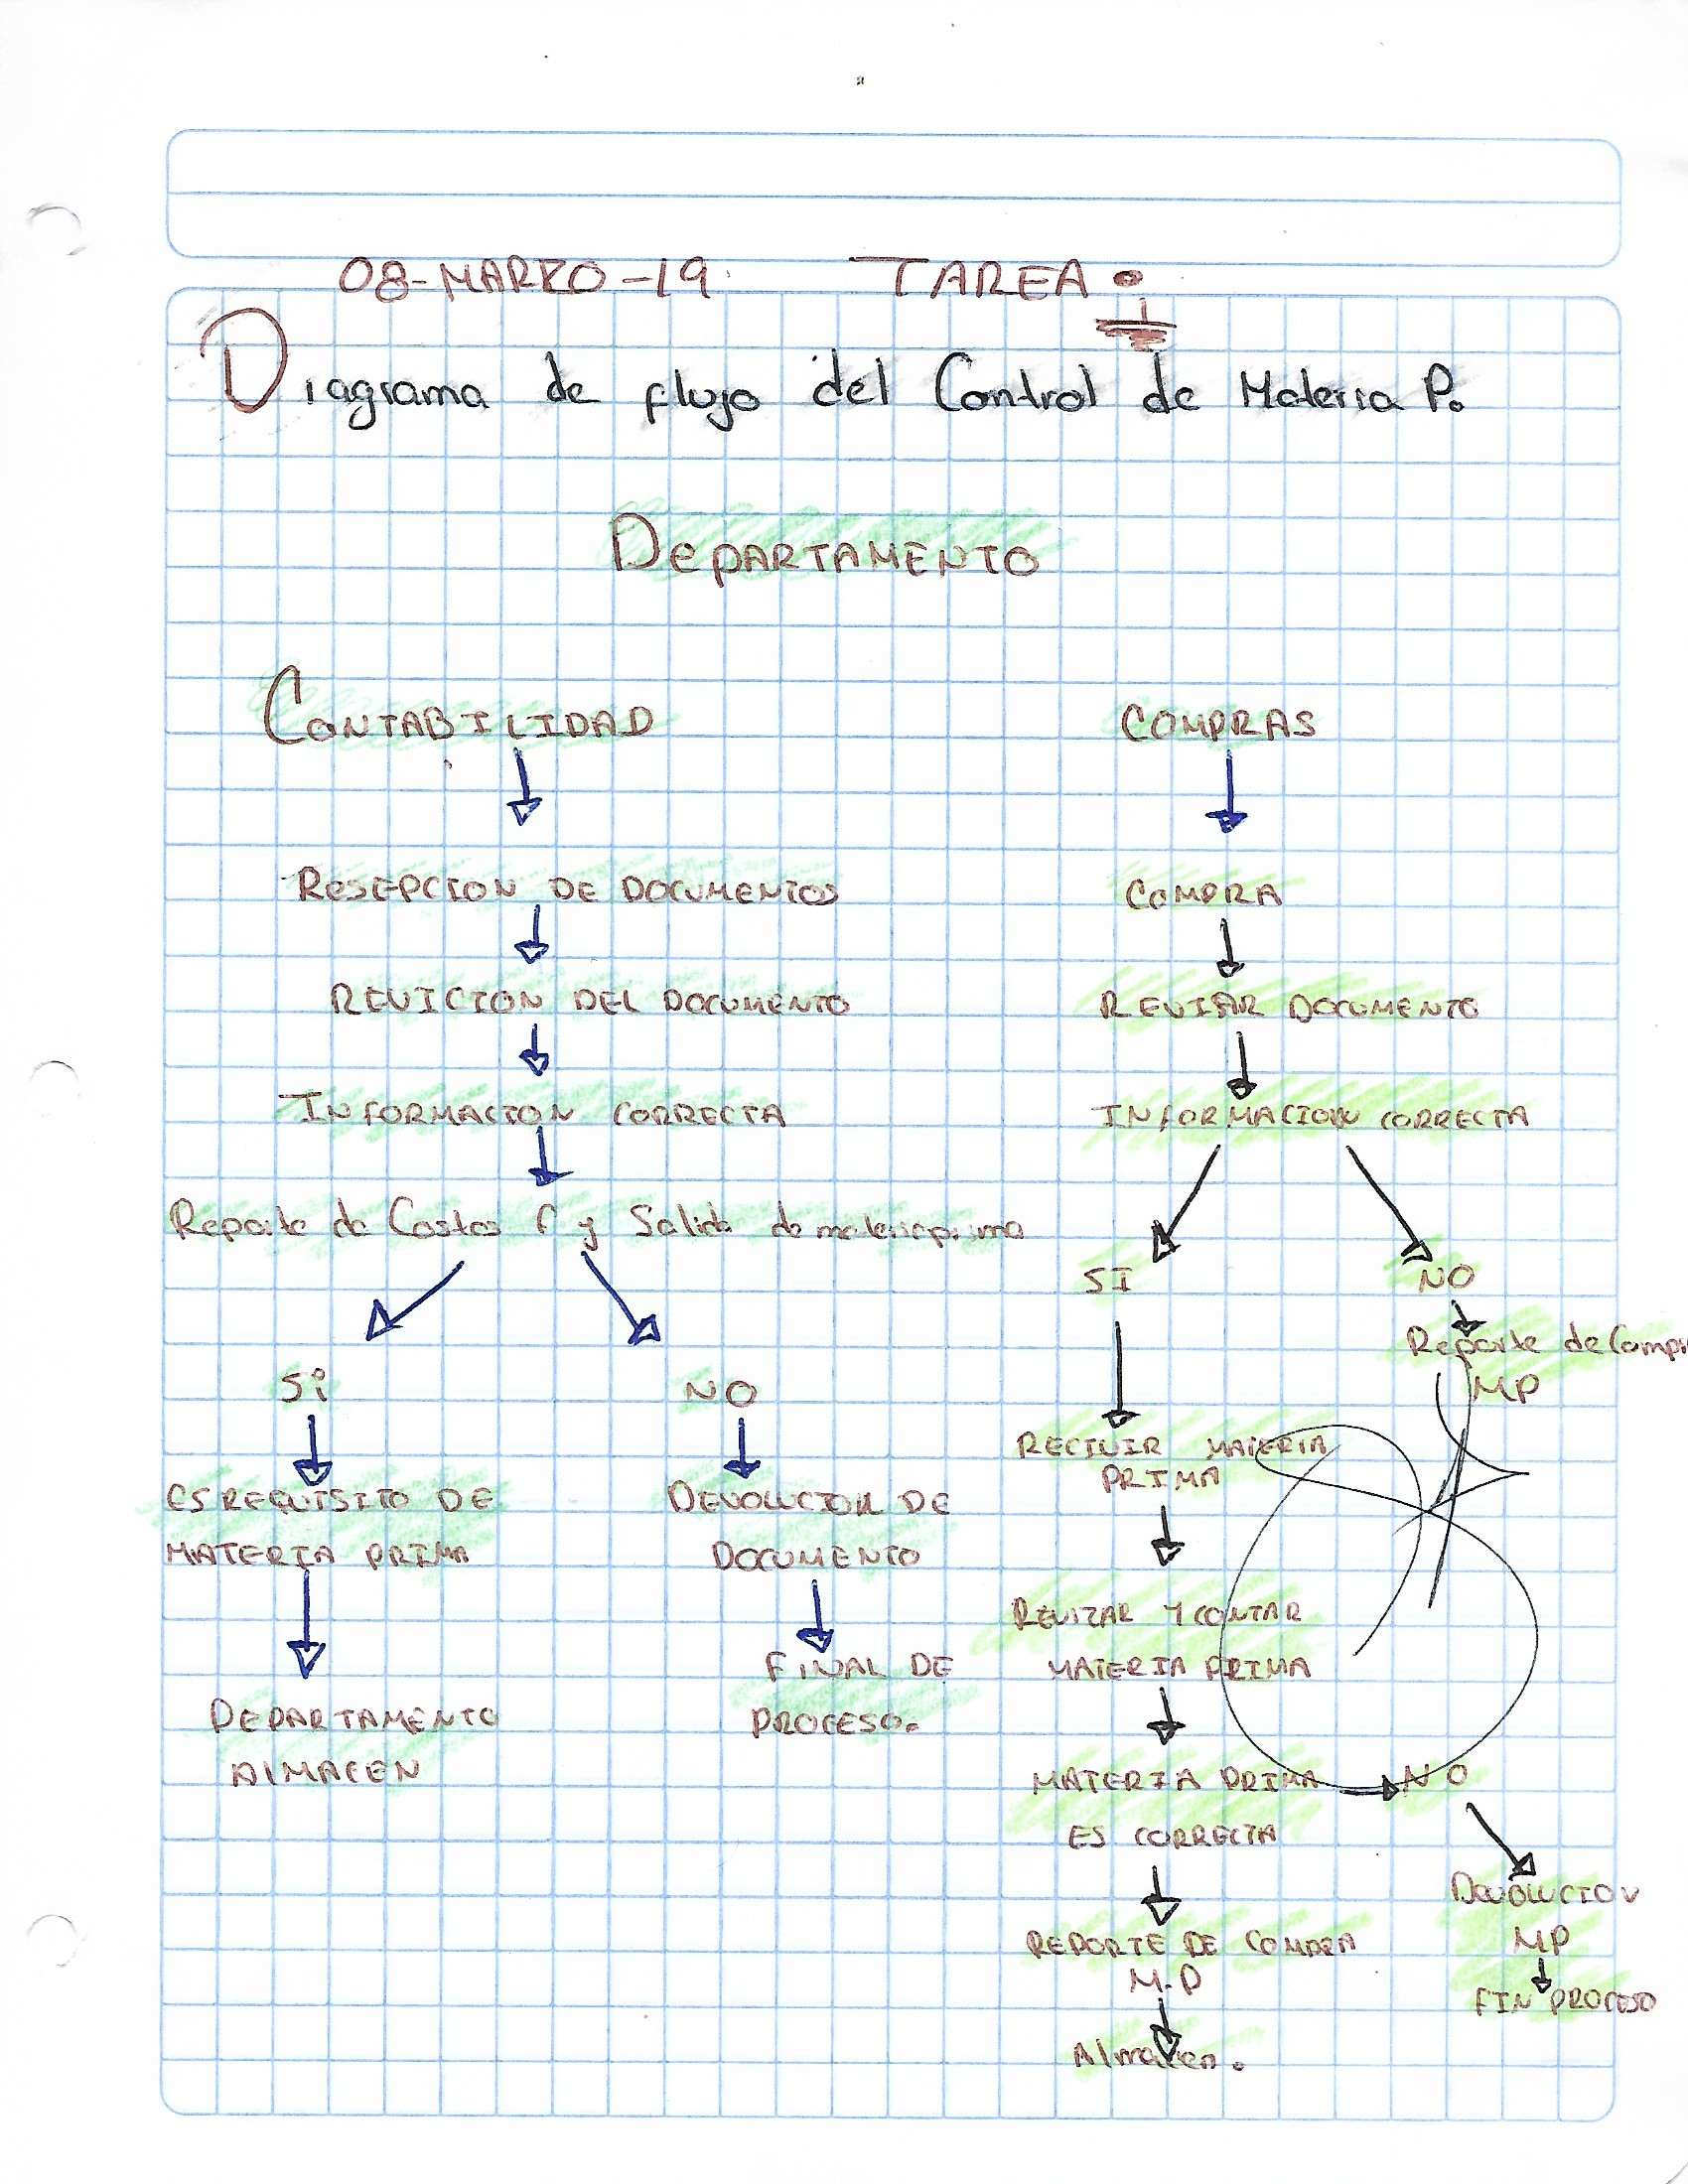 08-MARZO-19 TAREA
Diagrama de flujo del Control de Materia P.
DEPARTAMENTO
CONTABILIDAD
RESEPCION DE DOCUMENTOS
REVICION DEL DOCUMENTO
INFORMACION CORRECTA
Reporte de Costos f y Salida de materia prima
Si
NO
ES REQUISITO DE
MATERIA PRIMA
DEPARTAMENTO
AlMACEN
DEVOLUCION DE
DOCUMENTO
FINAL DE
PROCESO.
COMPRAS
COMPRA
REVISAR DOCUMENTO
INFORMACION CORRECTA
SI
NO
Reporte de Comp
MP
RECIVIR MATERIA
PRIMA
REVIZAR Y CONTAR
MATERIA PRIMA
MATERIA PRIMA
ES CORRECTA
NO
REPORTE DE COMPRA
M.P
Almacen.
DEVOLUCION
MP
FIN PROCESO